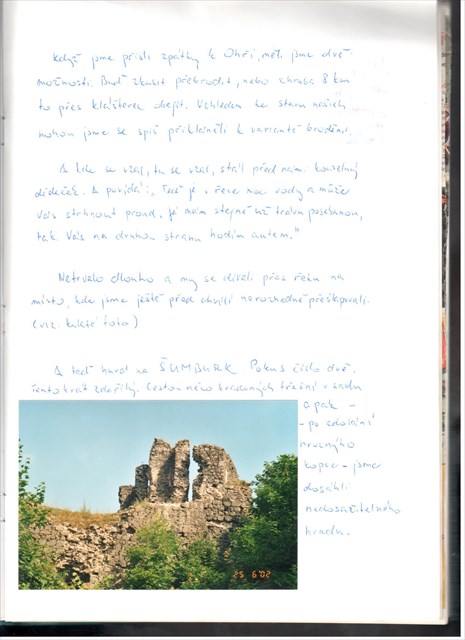 Když jsme přišli zpátky k Ohři, měli jsme dvě
možnosti. Buď zkusit přebrodit, nebo zhruba 8 km
to přes Klášterec obejít. Vzhledem ke stavu našich
nohou jsme se spíš přikláněli k variantě brodění.
A kde se vzal, tu se vzal, stál před námi kouzelný
dědeček. A povídá: "Teď je v řece moc vody a může
Vás strhnout proud. Já mám stejně už trávu posekanou,
tak Vás na druhou stranu hodím autem."
Netrvalo dlouho a my se dívali přes řeku na
místo, kde jsme ještě před chvílí nerozhodně přešlapovali.
(viz. foto)
A teď hurá na ŠUMBURK. Pokus číslo dvě.
Tentokrát zdařilý. Cestou něco kradených třešní v sadu
a pak -
- po zdolání
hrozného
kopce - jsme
dosáhli
nedosažitelného
hradu.
25 6'02